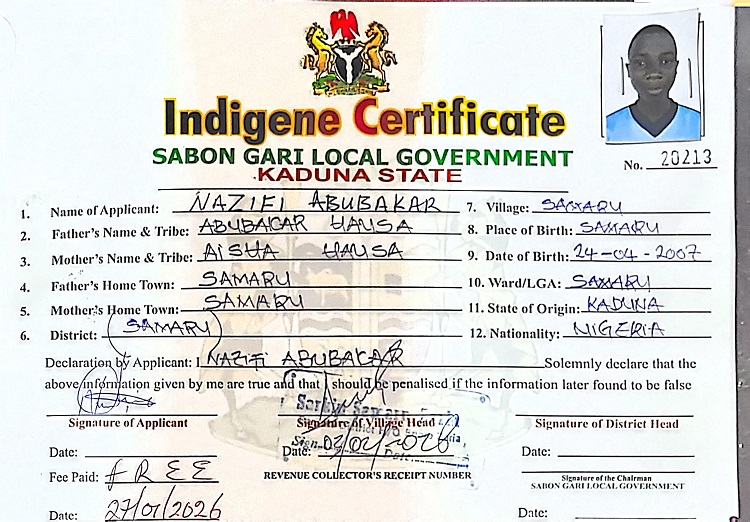 Indigene Certificate
SABON GARI LOCAL GOVERNMENT
KADUNA STATE
No. 20213
1. Name of Applicant: NAZIFI ABUBAKAR
2. Father's Name & Tribe: ABUBAKAR HAUSA
3. Mother's Name & Tribe: AISHA HAUSA
4. Father's Home Town: SAMARU
5. Mother's Home Town: SAMARU
6. District: SAMARU
7. Village: SAMARU
8. Place of Birth: SAMARU
9. Date of Birth: 24-04-2007
10. Ward/LGA: SAMARU
11. State of Origin: KADUNA
12. Nationality: NIGERIA
Declaration by Applicant: I NAZIFI ABUBAKAR Solemnly declare that the
above information given by me are true and that I should be penalised if the information later found to be false
Signature of Applicant
Date:
Fee Paid: FREE
Date: 27/01/2026
Signature of Village Head
Sign.
Date: 02/02/2026
REVENUE COLLECTOR'S RECEIPT NUMBER
Signature of District Head
Date:
Signature of the Chairman
SABON GARI LOCAL GOVERNMENT
Date: